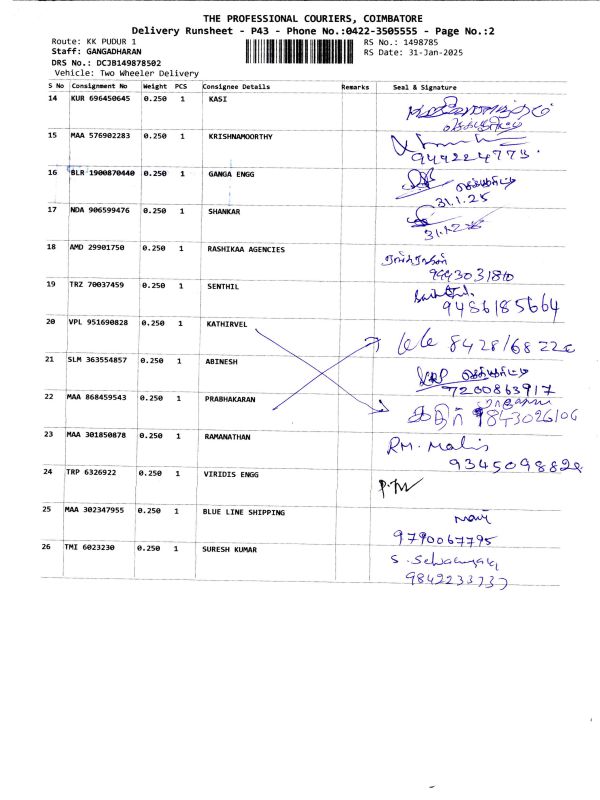 THE PROFESSIONAL COURIERS, COIMBATORE
Delivery Runsheet - P43 - Phone No.:0422-3505555 - Page No.:2
Route: KK PUDUR 1 RS No.: 1498785
Staff: GANGADHARAN RS Date: 31-Jan-2025
DRS No.: DCJB149878502
Vehicle: Two Wheeler Delivery
S No Consignment No Weight PCS Consignee Details Remarks Seal & Signature
14 KUR 696450645 0.250 1 KASI
15 MAA 576902283 0.250 1 KRISHNAMOORTHY
949224773
16 BLR 1900870440 0.250 1 GANGA ENGG
31.1.25
17 NDA 906599476 0.250 1 SHANKAR
18 AMD 29901750 0.250 1 RASHIKAA AGENCIES
19 TRZ 70037459 0.250 1 SENTHIL
9486185664
20 VPL 951690828 0.250 1 KATHIRVEL
21 SLM 363554857 0.250 1 ABINESH
7200863917
22 MAA 868459543 0.250 1 PRABHAKARAN
கதிர் 9843026106
23 MAA 301850878 0.250 1 RAMANATHAN
RM. Malis
24 TRP 6326922 0.250 1 VIRIDIS ENGG
25 MAA 302347955 0.250 1 BLUE LINE SHIPPING
9790067795
26 TMI 6023230 0.250 1 SURESH KUMAR
9842233737